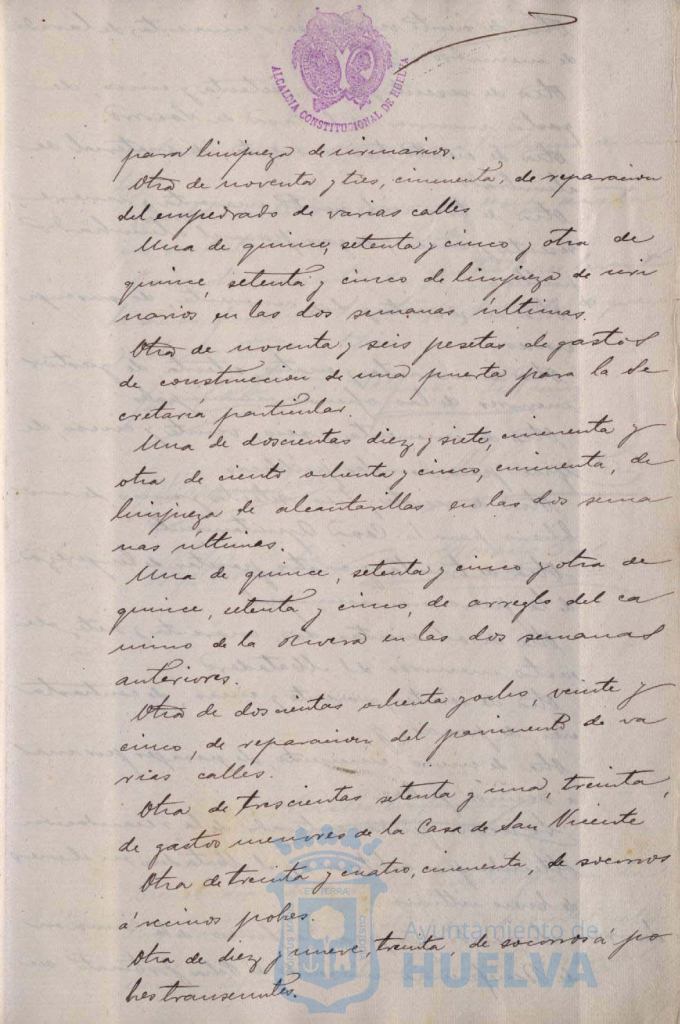 ALCALDIA CONSTITUCIONAL DE HUELVA
para limpieza de urinarios.
Otra de noventa y tres, cincuenta, de reparacion
del empedrado de varias calles
Una de quince, setenta y cinco y otra de
quince, setenta y cinco de limpieza de uri
narios en las dos semanas últimas.
Otra de noventa y seis pesetas de gastos
de construccion de una puerta para la Se
cretaría particular.
Una de doscientas diez y siete, cincuenta y
otra de ciento ochenta y cinco, cincuenta, de
limpieza de alcantarillas en las dos sema
nas últimas.
Una de quince, setenta y cinco y otra de
quince, setenta y cinco, de arreglo del ca
mino de la Rivera en las dos semanas
anteriores.
Otra de doscientas ochenta y ocho, veinte y
cinco, de reparacion del pavimento de va
rias calles.
Otra de trescientas setenta y una, treinta,
de gastos menores de la Casa de San Vicente
Otra de treinta y cuatro, cincuenta, de socorros
á vecinos pobres.
Otra de diez y nueve, treinta, de socorros á po
bres transeuntes.
Ayuntamiento de
HUELVA